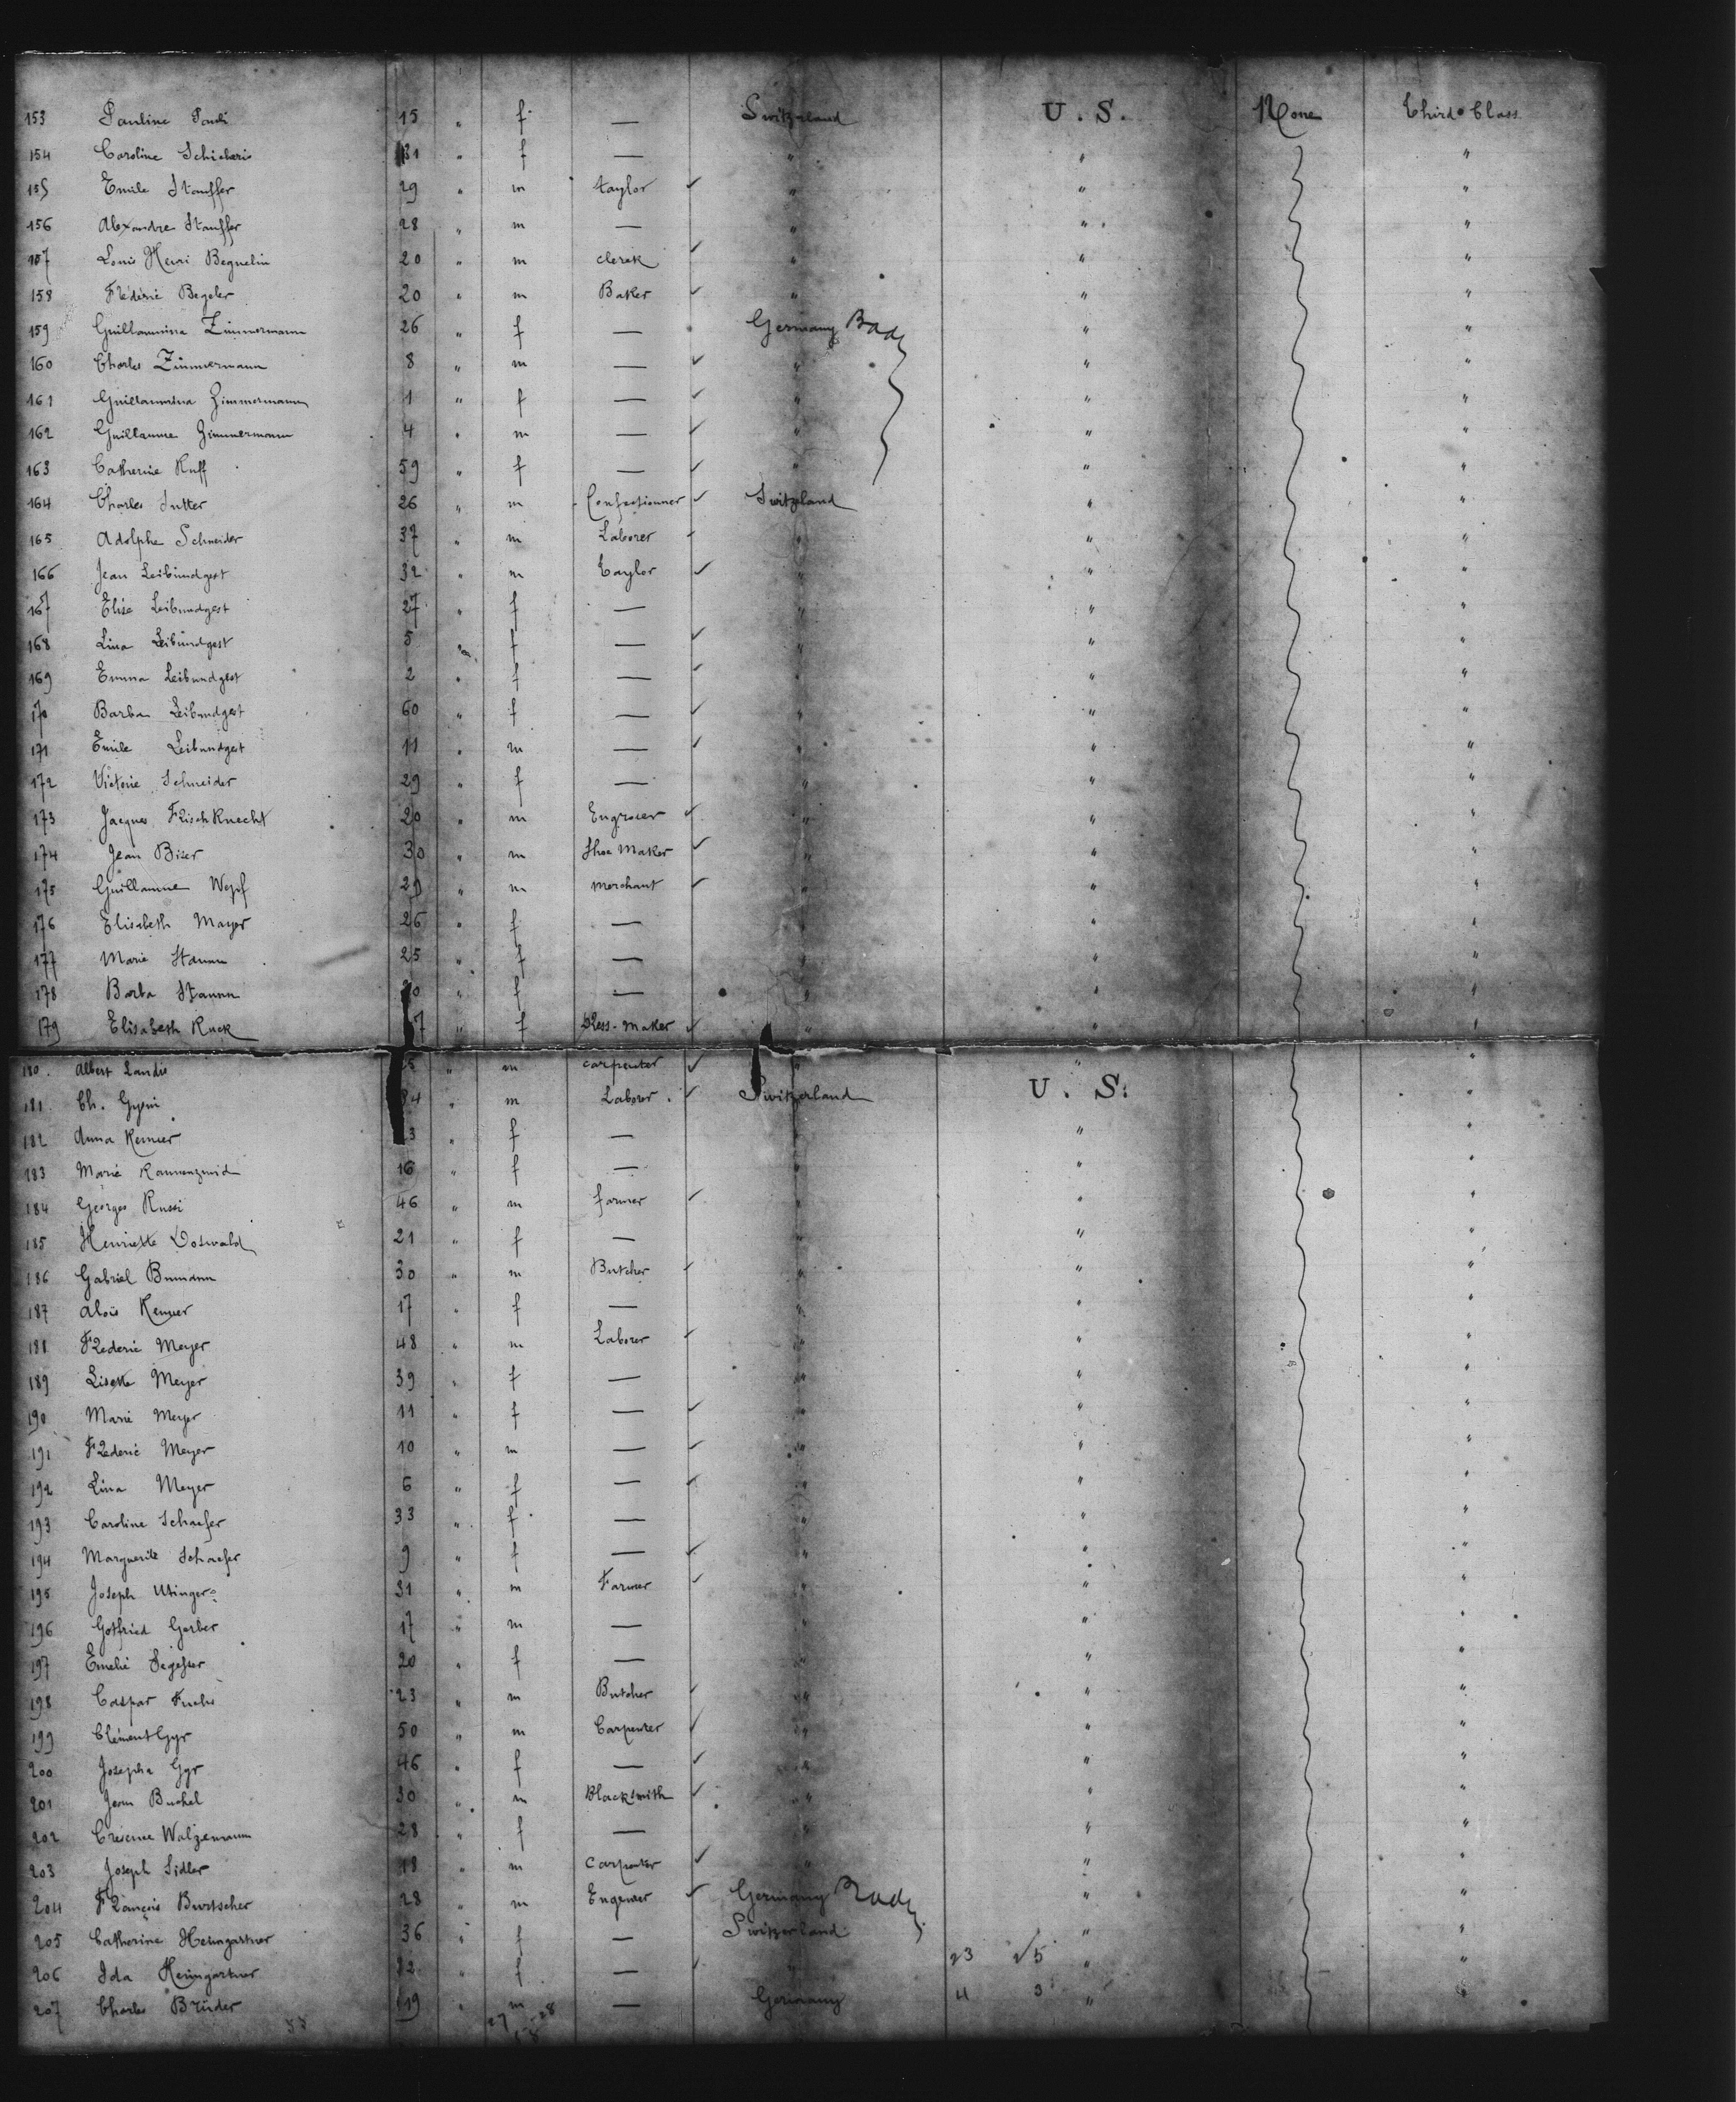 153 Pauline Pauli 15 " f — Switzerland U.S. None Third Class
154 Caroline 31 " f — " " "
155 Emile Stauffer 29 " m taylor ✓ " " "
156 Alexandre Stauffer 28 " m — " " "
157 Louis Henri Beguelin 20 " m clerck ✓ " " "
158 Frédéric Begeler 20 " m Baker ✓ " " "
159 Guillaumina Zimmermann 26 " f — Germany Bad " "
160 Charles Zimmermann 8 " m — ✓ " " "
161 Guillaumina Zimmermann 1 " f — ✓ " " "
162 Guillaume Zimmermann 4 " m — ✓ " " "
163 Catherine Ruff 59 " f — ✓ " " "
164 Charles Sutter 26 " m Confectionner ✓ Switzerland " "
165 Adolphe Schneider 37 " m Laborer ✓ " " "
166 Jean Leibundgest 32 " m Taylor ✓ " " "
167 Elise Leibundgest 27 " f — " " "
168 Lina Leibundgest 5 " f — ✓ " " "
169 Emma Leibundgest 2 " f — ✓ " " "
170 Barba Leibundgest 60 " f — ✓ " " "
171 Emile Leibundgest 11 " m — ✓ " " "
172 Victorie Schneider 29 " f — " " "
173 Jacques FrischKnecht 20 " m Engraver ✓ " " "
174 Jean Biser 30 " m Shoe Maker ✓ " " "
175 Guillaume Wepf 29 " m merchant ✓ " " "
176 Elisabeth Mayer 26 " f — " " "
177 Marie Stamm 25 " f — " " "
178 Barba Stamm 0 " f — " " "
179 Elisabeth Ruck 7 " f Dress-maker ✓ " " "
180. Albert Landis 5 " m carpenter ✓ " " "
181. Ch. Gysin 34 " m Laborer. ✓ Switzerland U.S. "
182 Anna Kenner 3 " f — " " "
183 Marie 16 " f — " " "
184 Georges Russi 46 " m farmer ✓ " " "
185 Henriette Doswald 21 " f — " " "
186 Gabriel Bumann 30 " m Butcher ✓ " " "
187 Alois Kenner 17 " f — " " "
188 Frederic Meyer 48 " m Laborer ✓ " " "
189 Lisette Meyer 39 " f — " " "
190 Marie Meyer 11 " f — ✓ " " "
191 Frederic Meyer 10 " m — ✓ " " "
192 Lina Meyer 6 " f — ✓ " " "
193 Caroline Schaefer 33 " f — " " "
194 Marguerite Schaefer 9 " f — ✓ " " "
195 Joseph Utinger 31 " m Farmer ✓ " " "
196 Gotfried Gerber 17 " m — " " "
197 Emelie Segesser 20 " f — " " "
198 Caspar Fuchs 23 " m Butcher ✓ " " "
199 Clément Gyr 50 " m Carpenter ✓ " " "
200 Josepha Gyr 46 " f — ✓ " " "
201 Jean Buchel 30 " m Blacksmith ✓ " " "
202 Walzemann 28 " f — " " "
203 Joseph Sidler 18 " m Carpenter ✓ " " "
204 François Burtscher 28 " m Engeneer ✓ Germany Bad " "
205 Catherine Hemgartner 36 " f — Switzerland " "
206 Ida Hemgartner 32 " f — " 23 25 " "
207 Charles Brüder 19 " m — Germany 4 3 " "